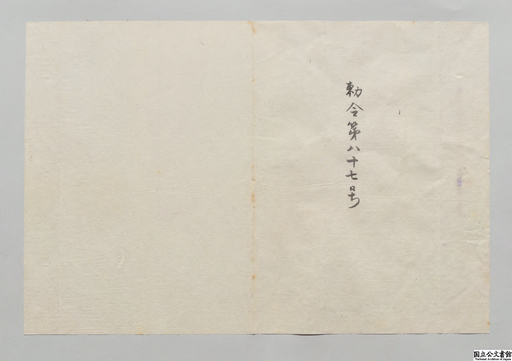 勅令第八十七号
国立公文書館
National Archives of Japan